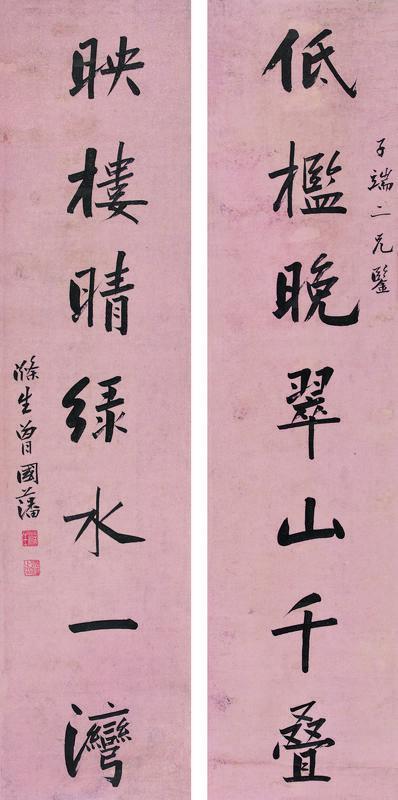 子端二兄鑒
低檻晚翠山千叠
映樓晴綠水一灣
滌生曾國藩